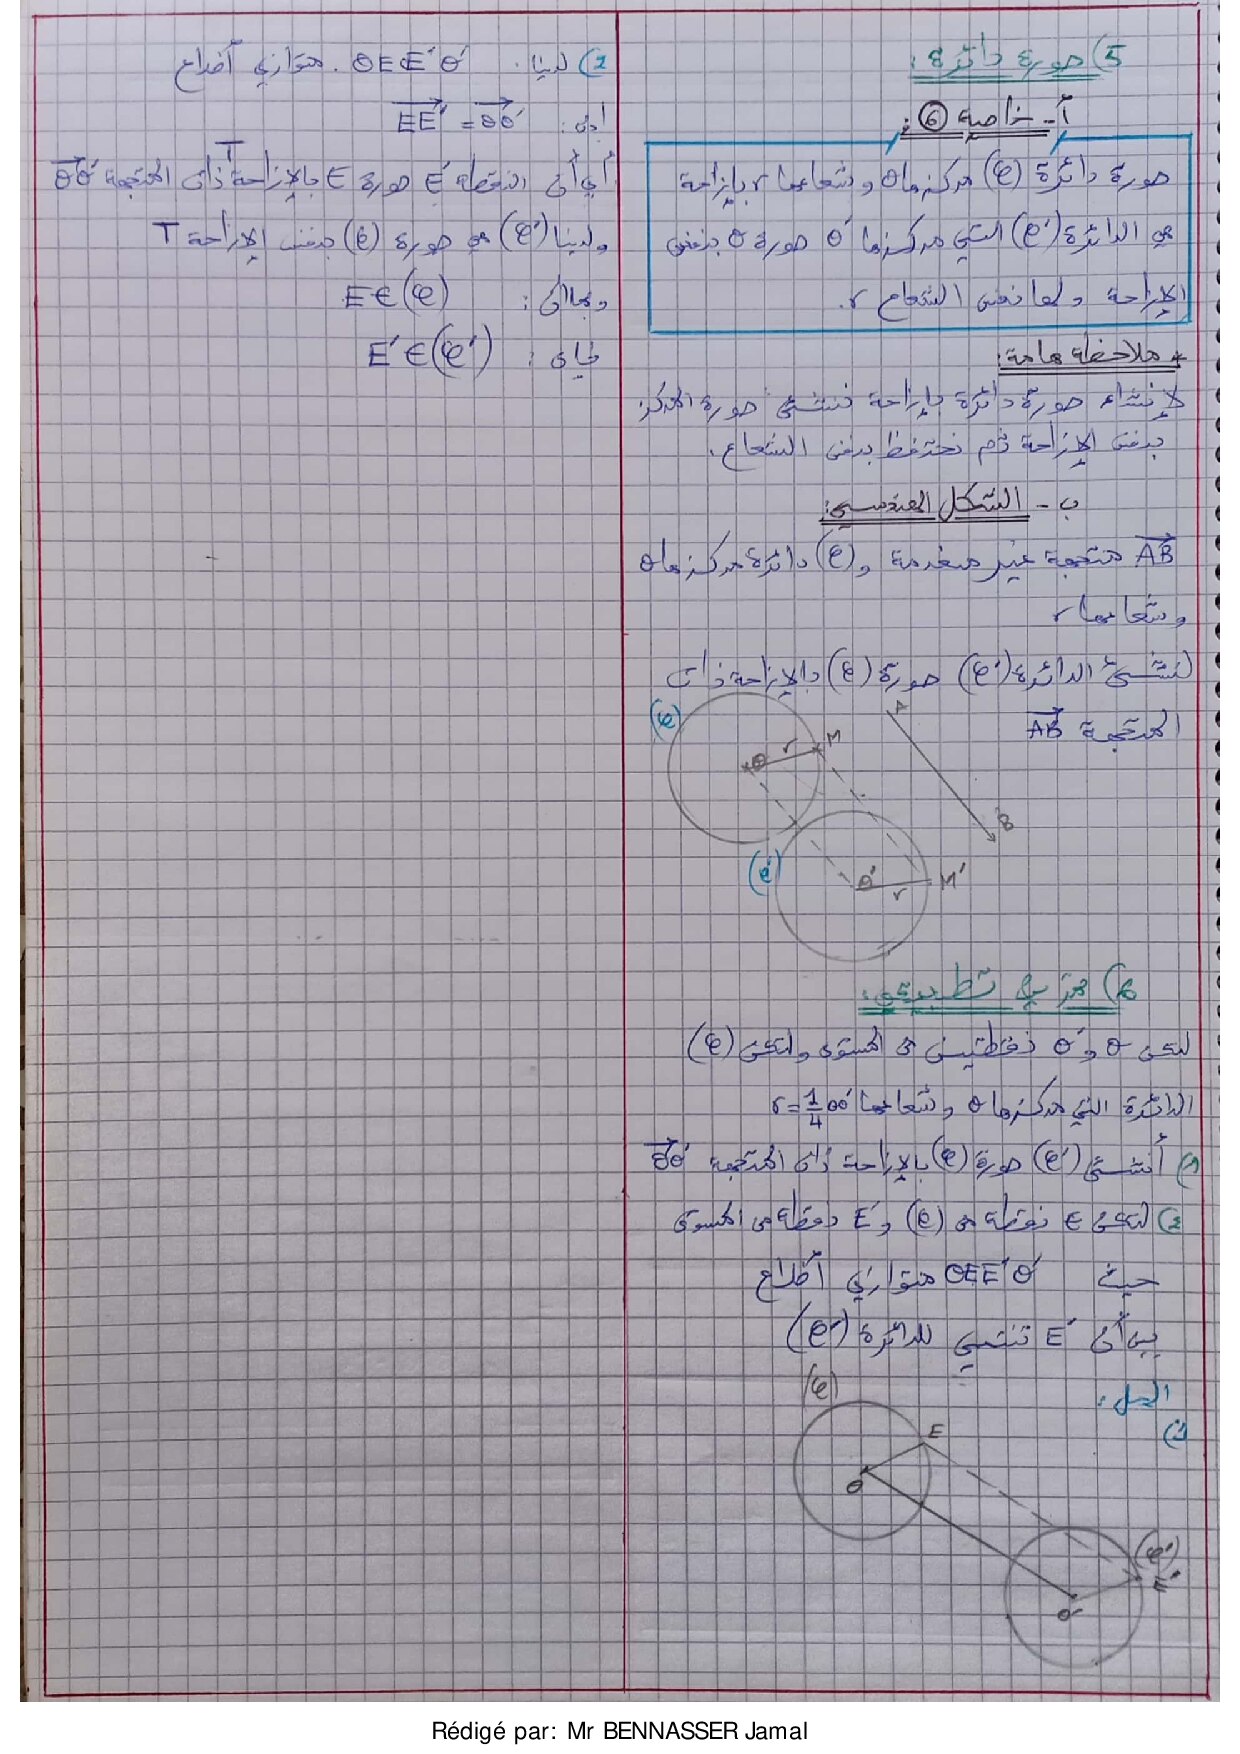 5) صورة دائرة :
أ- خاصية ⑥ :
صورة دائرة (C) مركزها O وشعاعها r بإزاحة
هي الدائرة (C') التي مركزها O' صورة O بنفس
الإزاحة ولها نفس الشعاع r.
* ملاحظة هامة:
لإنشاء صورة دائرة بإزاحة ننشئ صورة المركز
بنفس الإزاحة ثم نحتفظ بنفس الشعاع.
ب - الشكل الهندسي:
AB متجهة غير منعدمة و (C) دائرة مركزها O
وشعاعها r
لننشئ الدائرة (C') صورة (C) بالإزاحة ذات
المتجهة AB
(C)
A
O r M
B
(C')
O' r M'
6) تمرين تطبيقي:
لتكن O و O' نقطتين من المستوى ولتكن (C)
الدائرة التي مركزها O وشعاعها r = 1/4 OO'
1) أنشئ (C') صورة (C) بالإزاحة ذات المتجهة OO'
2) لتكن E نقطة من (C) و E' نقطة من المستوى
حيث OEE'O' متوازي أضلاع
بين أن E' تنتمي للدائرة (C')
الحل :
1)
(C)
E
O
(C')
E'
O'
2) لدينا . OEE'O' متوازي أضلاع
إذن : EE' = OO'
أي أن النقطة E' صورة E بالإزاحة T ذات المتجهة OO'
ولدينا (C') هي صورة (C) بنفس الإزاحة T
وبما أن : E ∈ (C)
فإن : E' ∈ (C')
Rédigé par: Mr BENNASSER Jamal